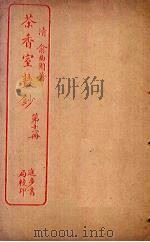 清 俞曲園著
茶香室叢鈔
第十冊
進步書
局校印